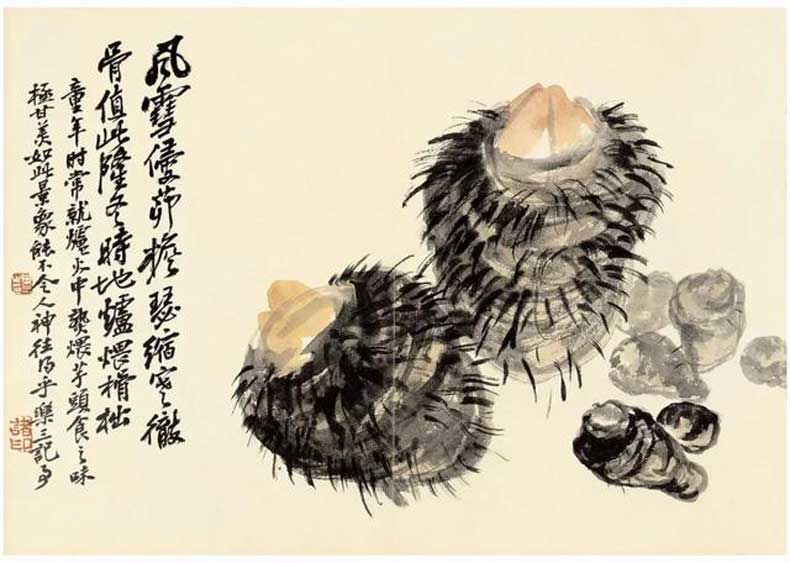 風雪侵茆檐瑟縮寒徹
骨值此隆冬時地爐煨榾柮
童年时常就爐火中煨芋頭食之味
極甘美如此景象能不令人神往乎樂三記